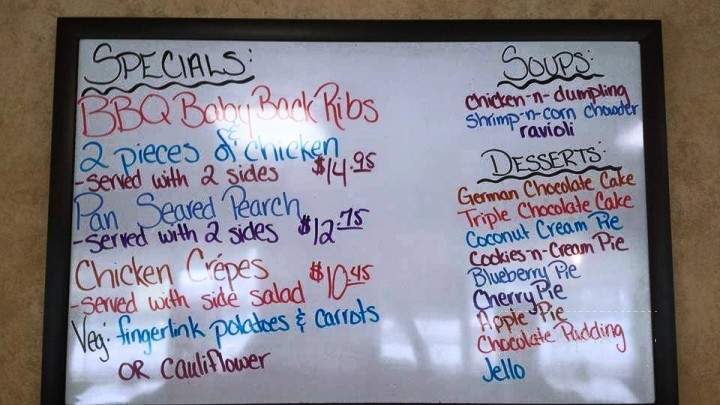 SPECIALS:
BBQ Baby Back Ribs
&
2 pieces of chicken
-served with 2 sides $14.95
Pan Seared Pearch
-served with 2 sides $12.75
Chicken Crépes
-served with side salad $10.45
Veg: fingerlink potatoes & carrots
OR cauliflower
SOUPS:
chicken-n-dumpling
Shrimp-n-corn chowder
ravioli
DESSERTS:
German Chocolate Cake
Triple Chocolate Cake
Coconut Cream Pie
Cookies-n-Cream Pie
Blueberry Pie
Cherry Pie
Apple Pie
Chocolate Pudding
Jello